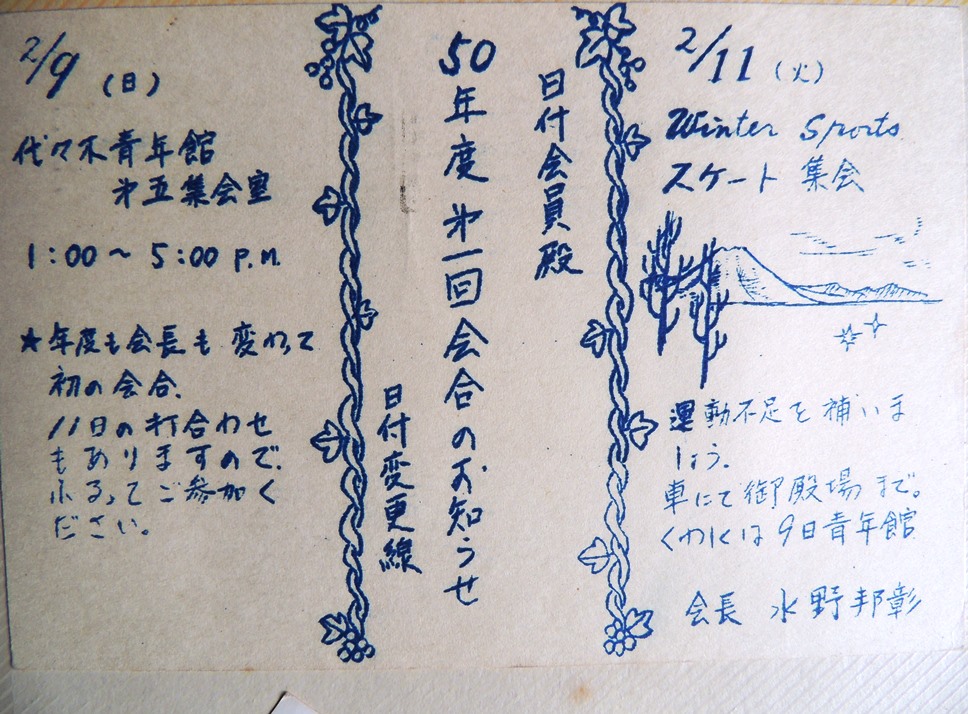 2/9 (日)
代々木青年館
第五集会室
1:00～5:00 P.M.
★年度も会長も変わって
初の会合.
11日の打合わせ
もありますので.
ふるってご参加く
ださい。
日付会員殿
50年度 第一回会合のお知らせ
日付変更線
2/11 (火)
Winter Sports
スケート集会
運動不足を補いま
しょう.
車にて御殿場まで。
くわしくは9日青年館
会長 水野邦彰